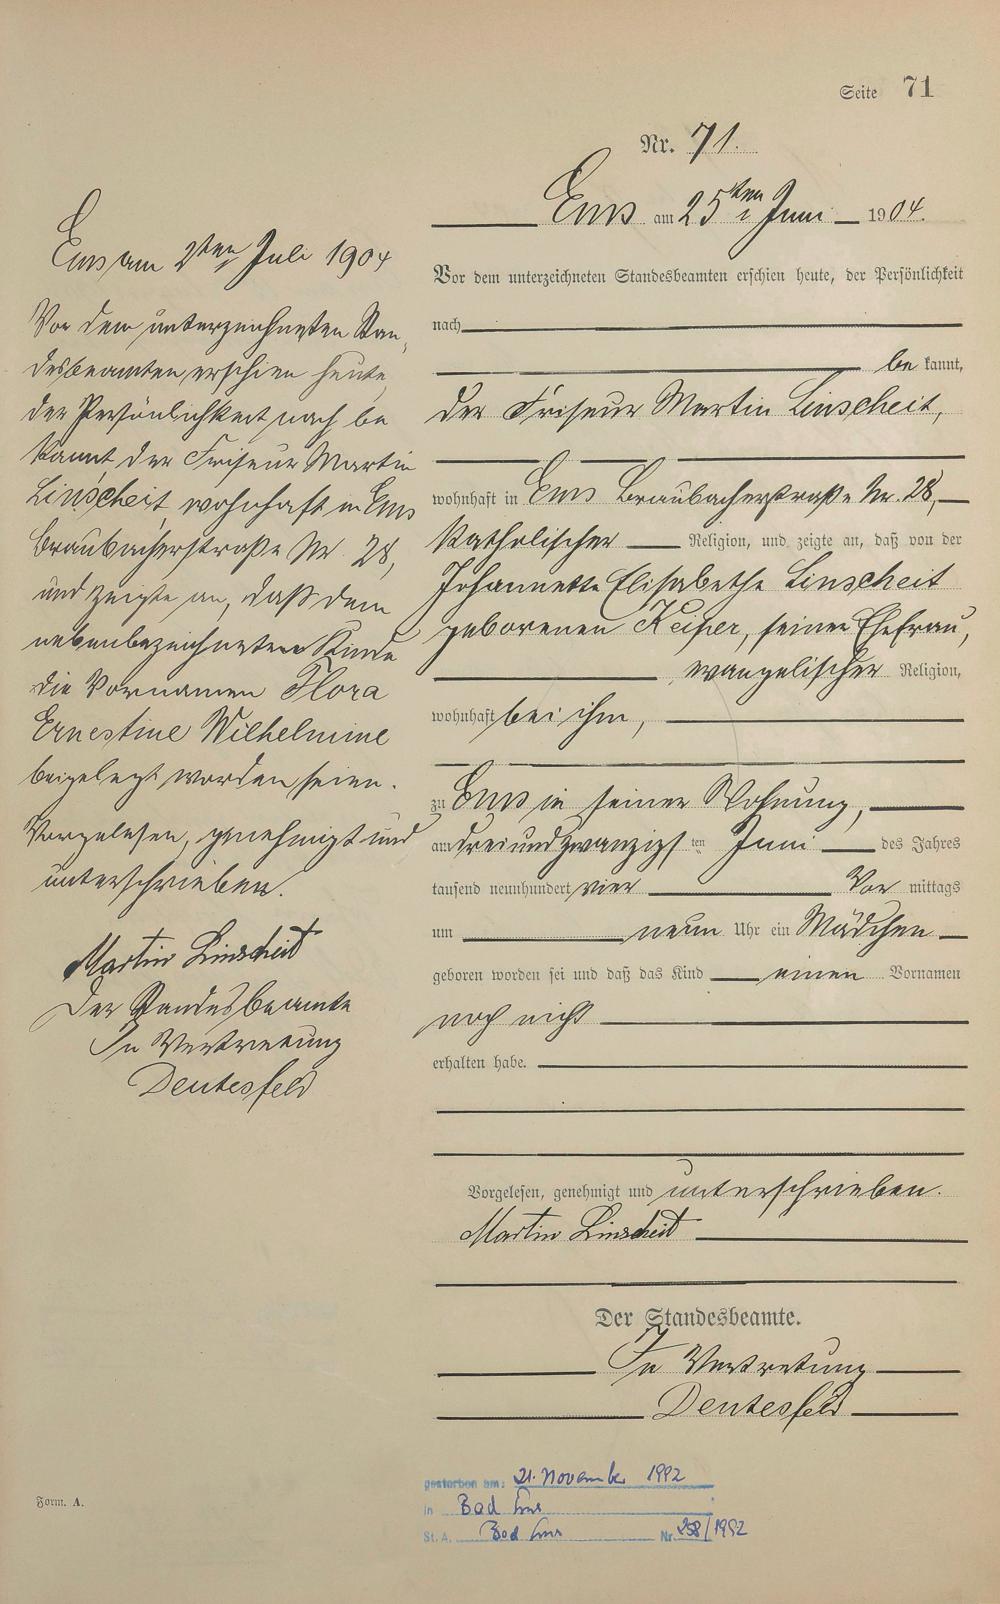 Seite 71
Nr. 71.
Ems am 25ten Juni 1904.
Vor dem unterzeichneten Standesbeamten erschien heute, der Persönlichkeit
nach
be kannt,
der Friseur Martin Linscheit,
wohnhaft in Ems Braubacherstraße Nr. 28,
katholischer Religion, und zeigte an, daß von der
Johannette Elisabethe Linscheit
geborenen Keiper, seiner Ehefrau,
evangelischer Religion,
wohnhaft bei ihm,
zu Ems in seiner Wohnung,
am dreiundzwanzigsten Juni des Jahres
tausend neunhundert vier Vor mittags
um neun Uhr ein Mädchen
geboren worden sei und daß das Kind einen Vornamen
noch nicht
erhalten habe.
Vorgelesen, genehmigt und unterschrieben.
Martin Linscheit
Der Standesbeamte.
In Vertretung
Deutesfeld
Ems am 2ten Juli 1904
Vor dem unterzeichneten Stan-
desbeamten erschien heute,
der Persönlichkeit nach be
kannt, der Friseur Martin
Linscheit, wohnhaft in Ems
Braubacherstraße Nr. 28,
und zeigte an, daß dem
nebenbezeichneten Kinde
die Vornamen Flora
Ernestine Wilhelmine
beigelegt worden seien.
Vorgelesen, genehmigt und
unterschrieben.
Martin Linscheit
Der Standesbeamte
In Vertretung
Deutesfeld
gestorben am: 21. November 1992
in Bad Ems
St. A. Bad Ems Nr. 258/1992
Form. A.